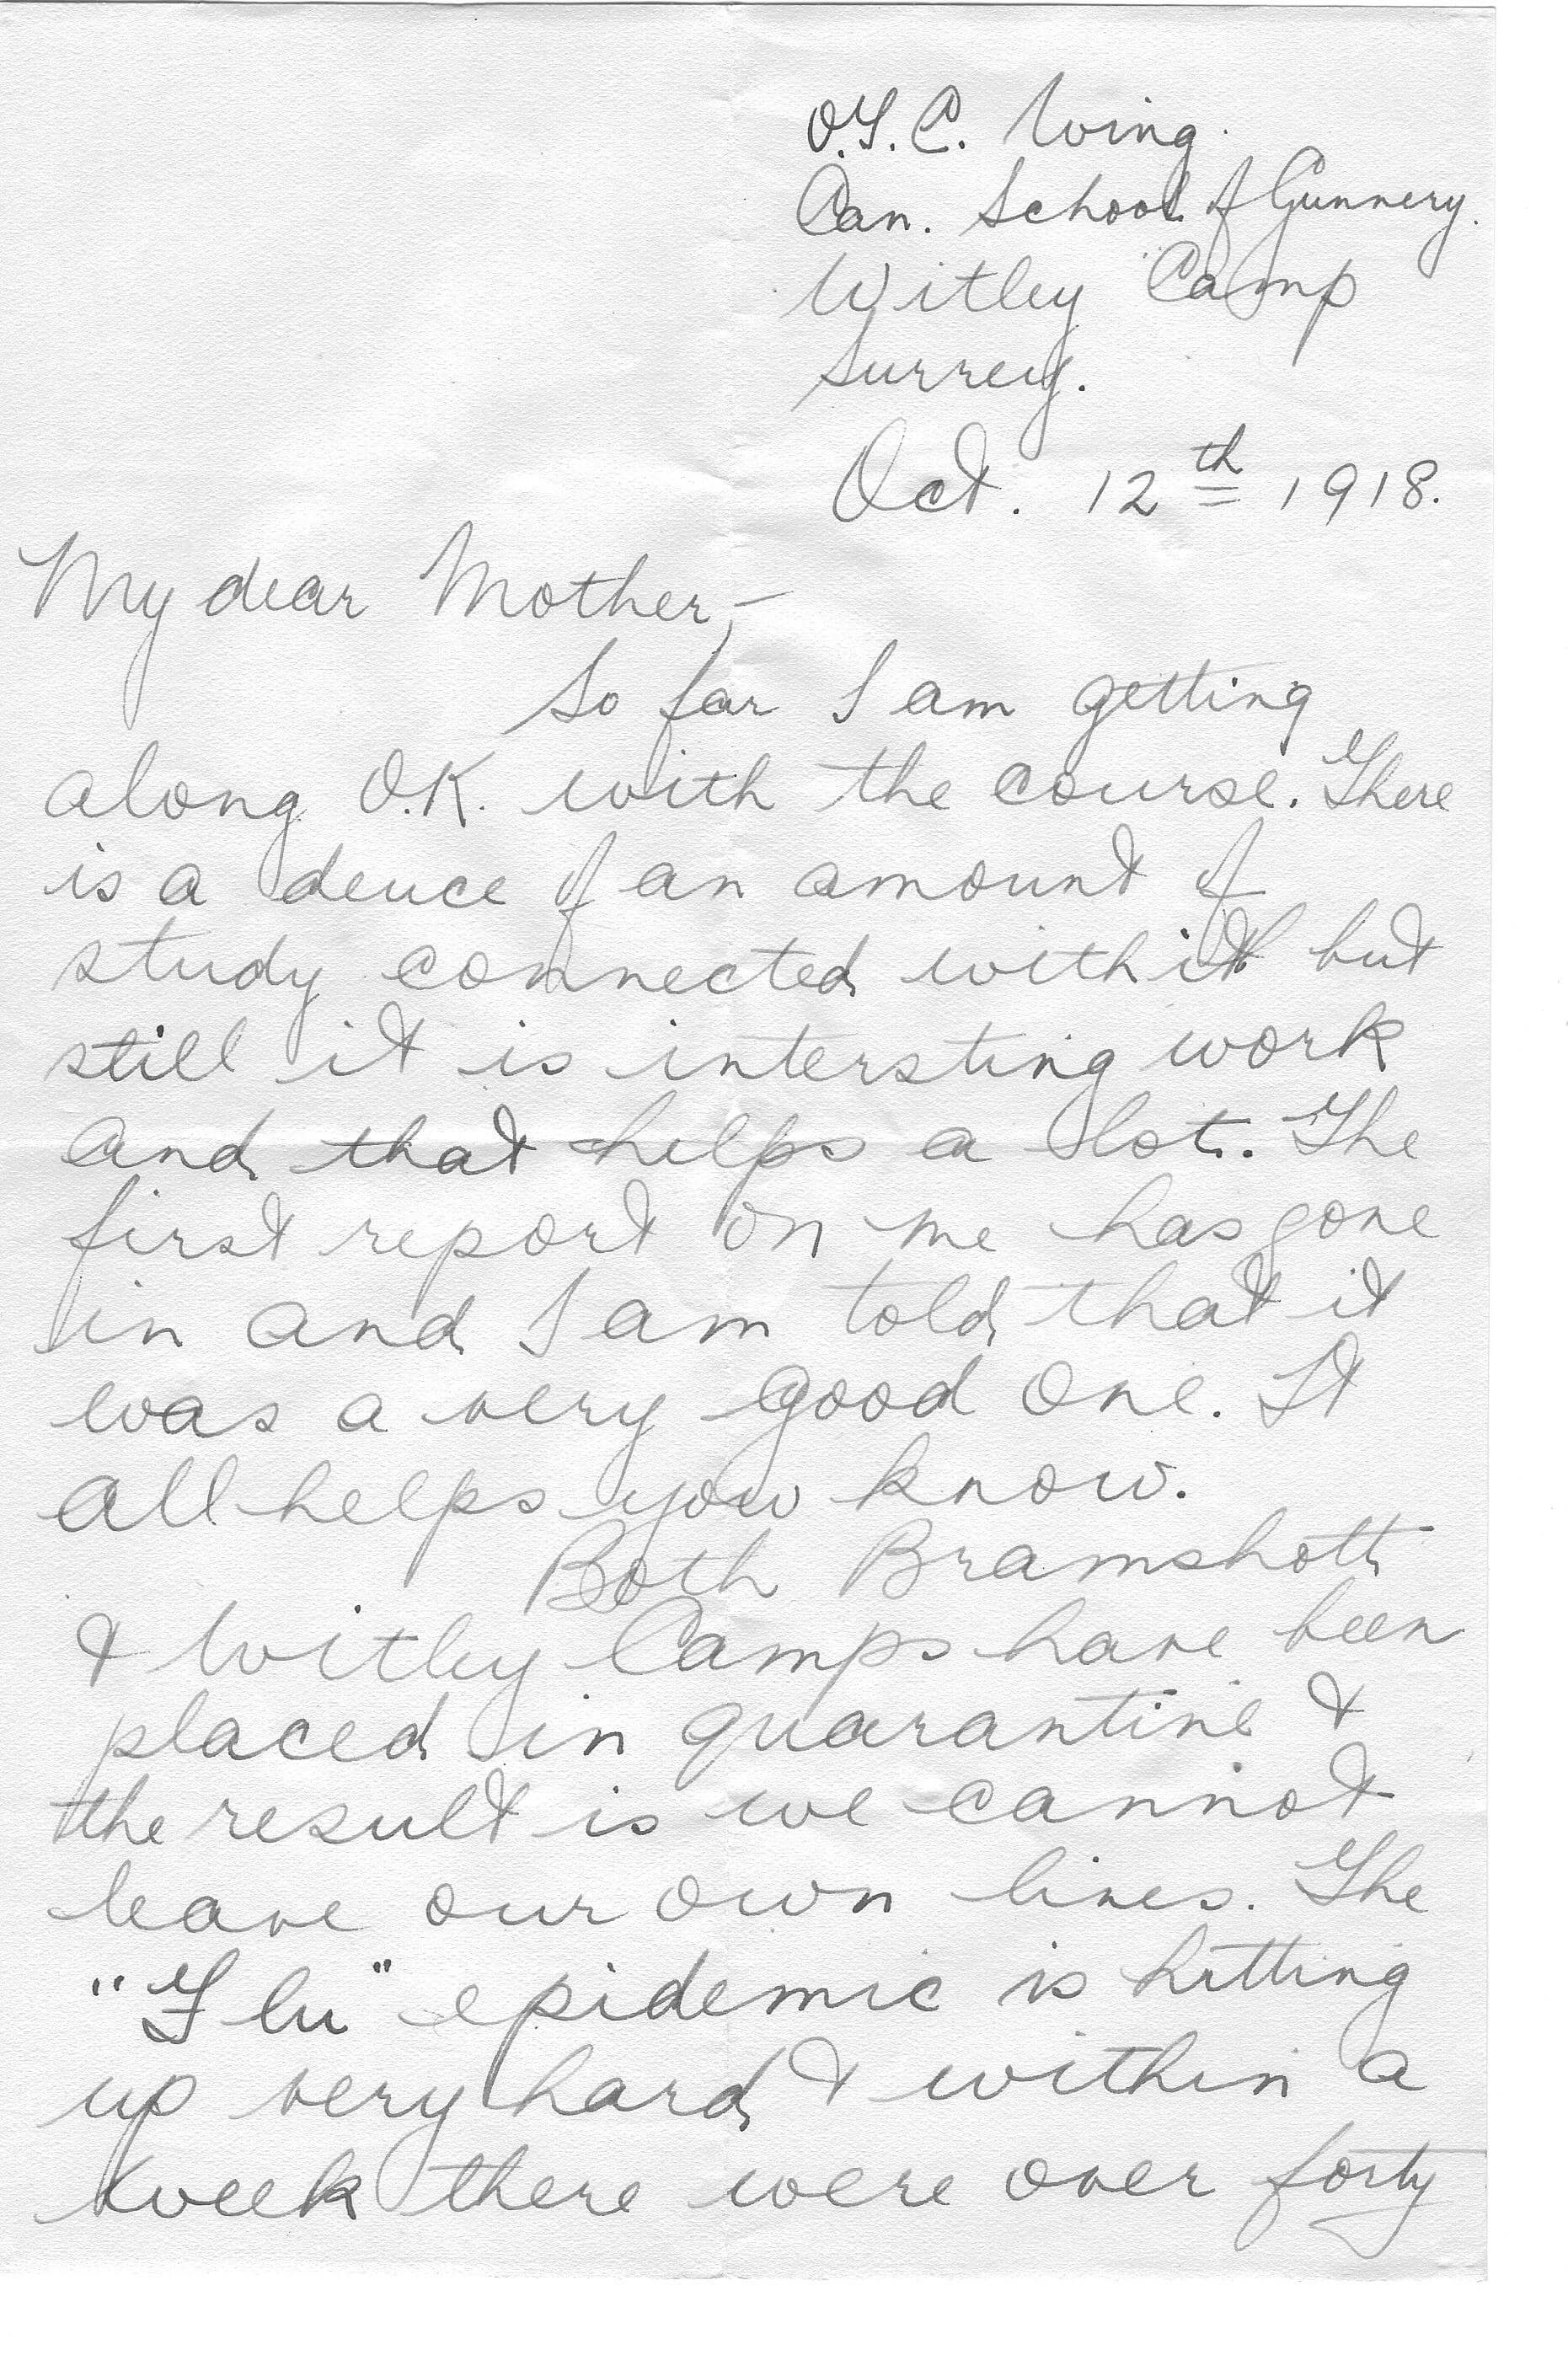 O.T.C. Wing.
Can. School of Gunnery.
Witley Camp
Surrey.
Oct. 12th 1918.
My dear Mother,-
So far I am getting
along O.K. with the course. There
is a deuce of an amount of
study connected with it but
still it is intersting work
and that helps a lot. The
first report on me has gone
in and I am told that it
was a very good one. It
all helps you know.
Both Bramshott
& Witley Camps have been
placed in quarantine &
the result is we cannot
leave our own lines. The
"Flu" epidemic is hitting
up very hard & within a
week there were over forty